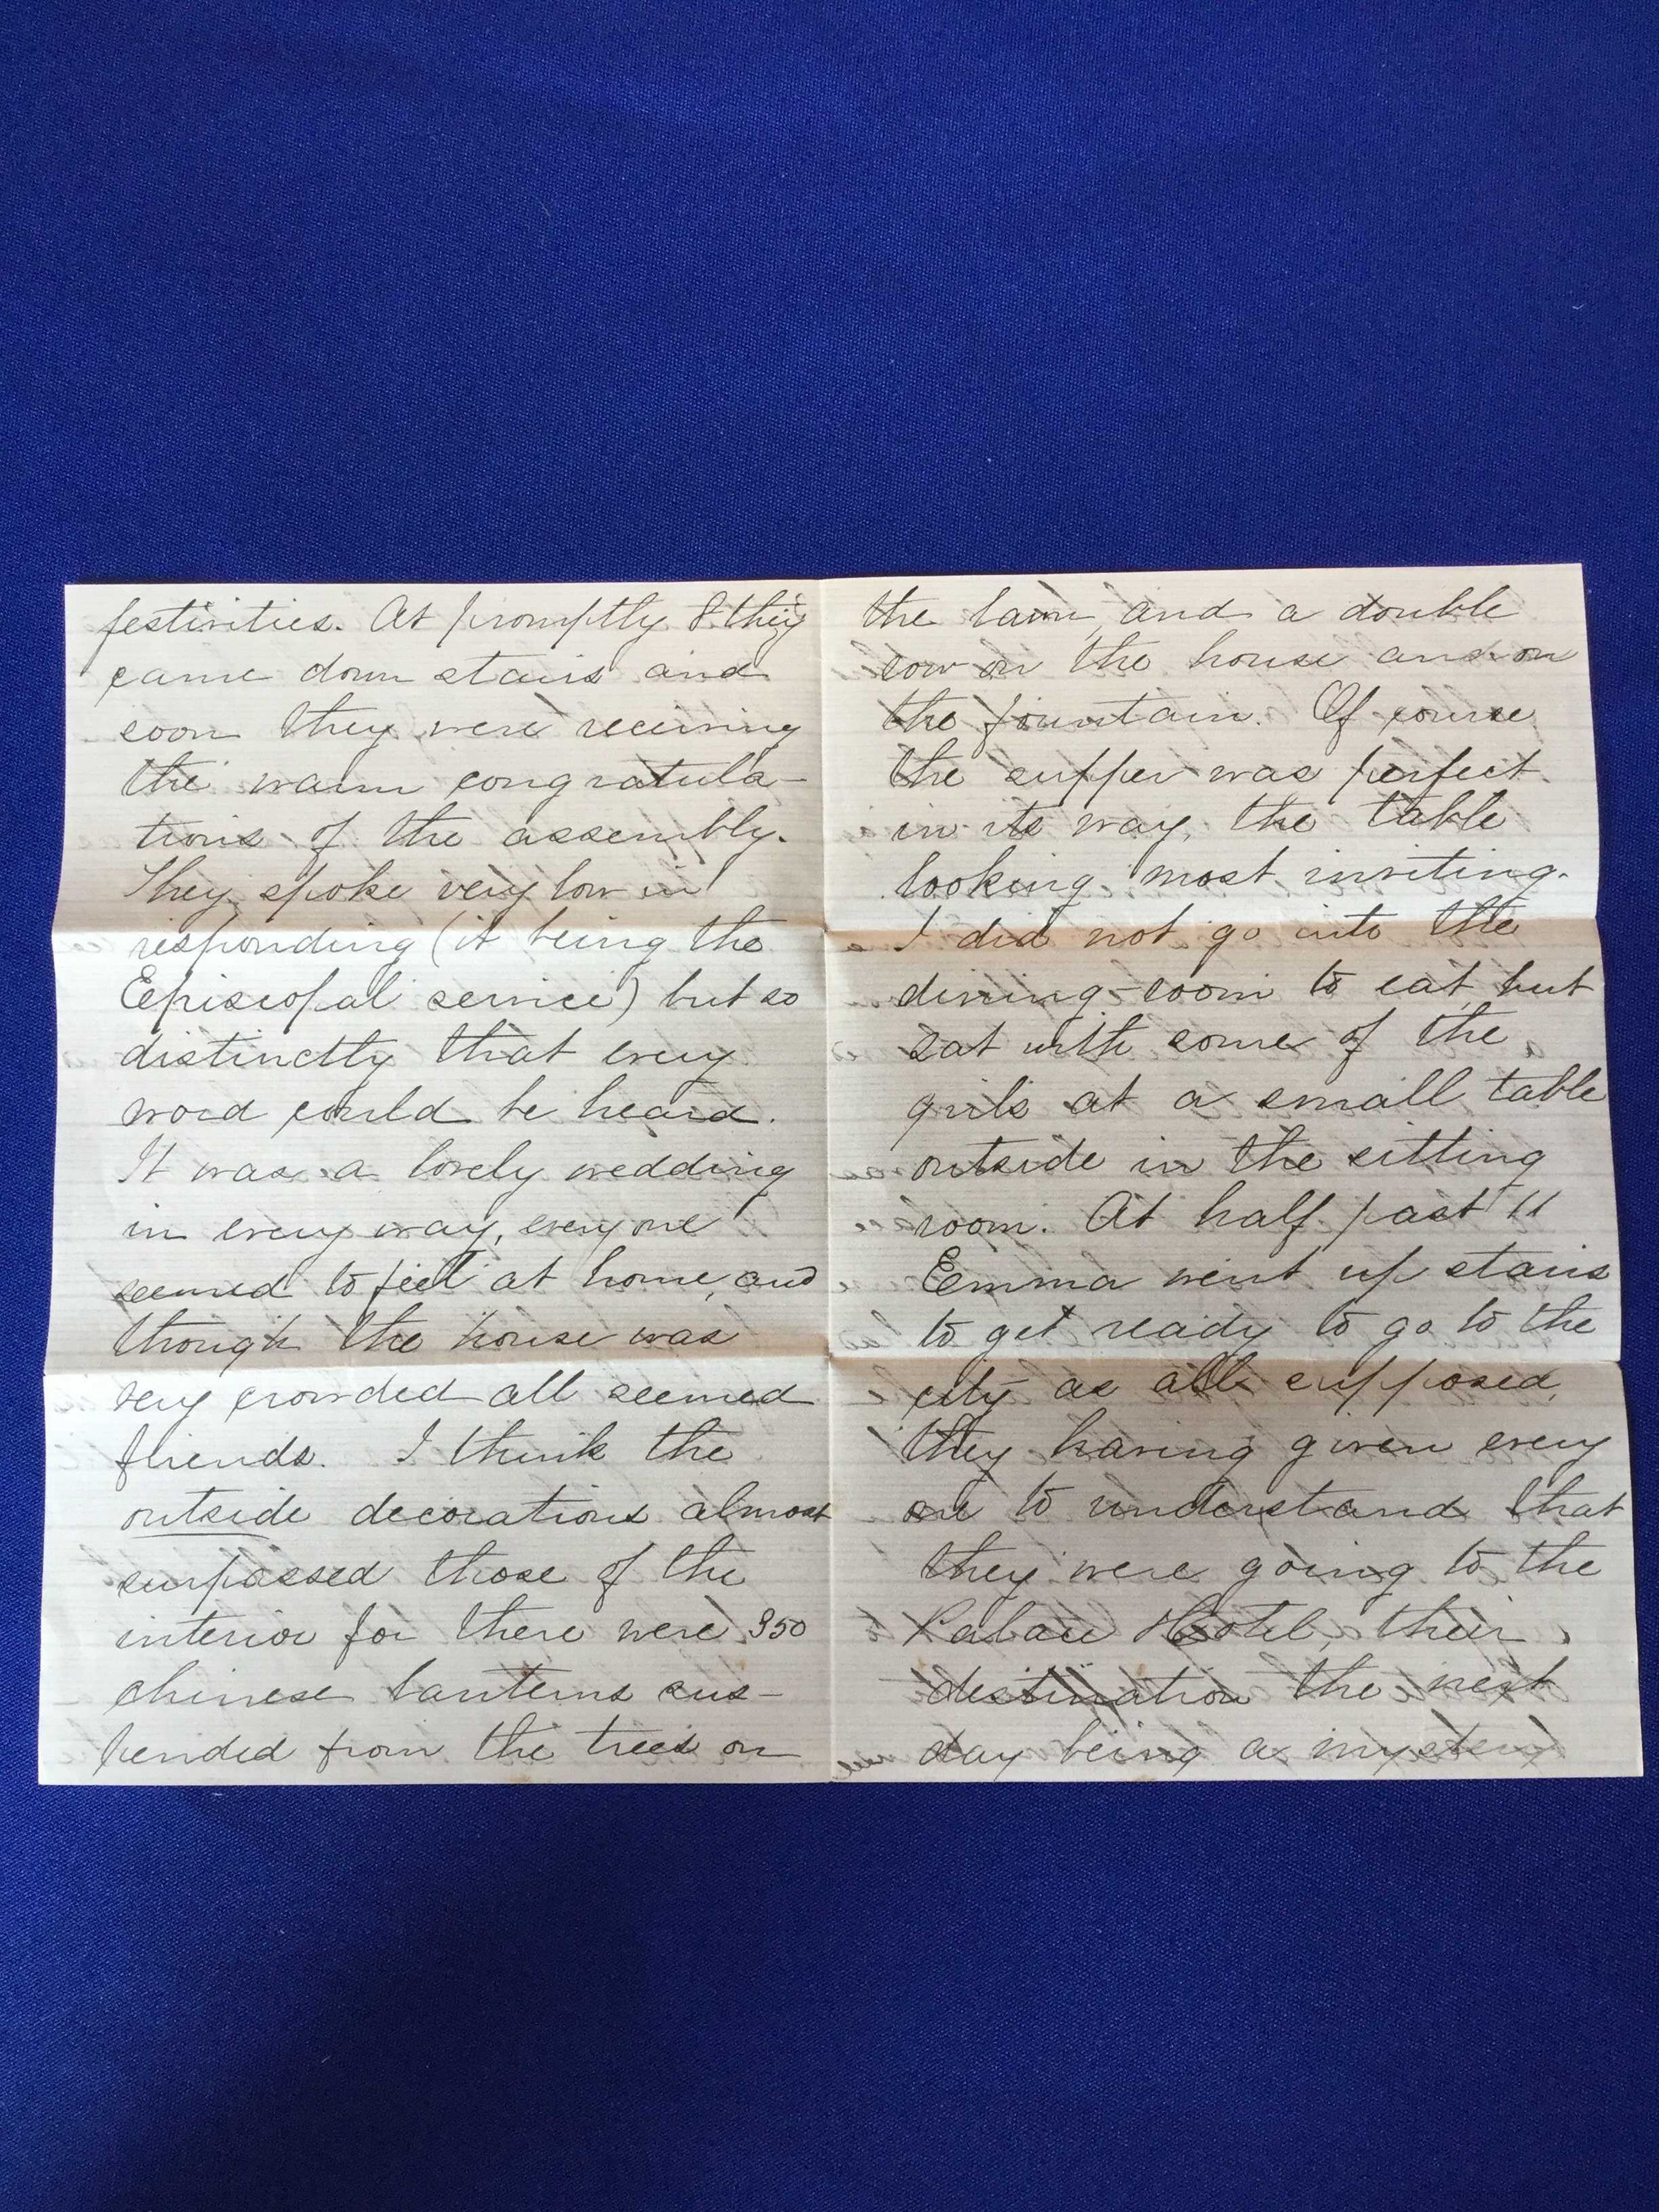 festivities. At promptly 8 they
came down stairs and
soon they were receiving
the warm congratula-
tions of the assembly.
They spoke very low in
responding (it being the
Episcopal service) but so
distinctly that every
word could be heard.
It was a lovely wedding
in every way, every one
seemed to feel at home, and
though the house was
very crowded all seemed
friends. I think the
outside decorations almost
surpassed those of the
interior for there were 350
chinese lanterns sus-
pended from the trees on
the lawn, and a double
row on the house and on
the fountain. Of course
the supper was perfect
in its way, the table
looking most inviting.
I did not go into the
dining-room to eat, but
sat with some of the
girls at a small table
outside in the sitting
room. At half past 11
Emma went up stairs
to get ready to go to the
city as all supposed,
they having given every
one to understand that
they were going to the
Palace Hotel, their
destination the next
day being a mystery